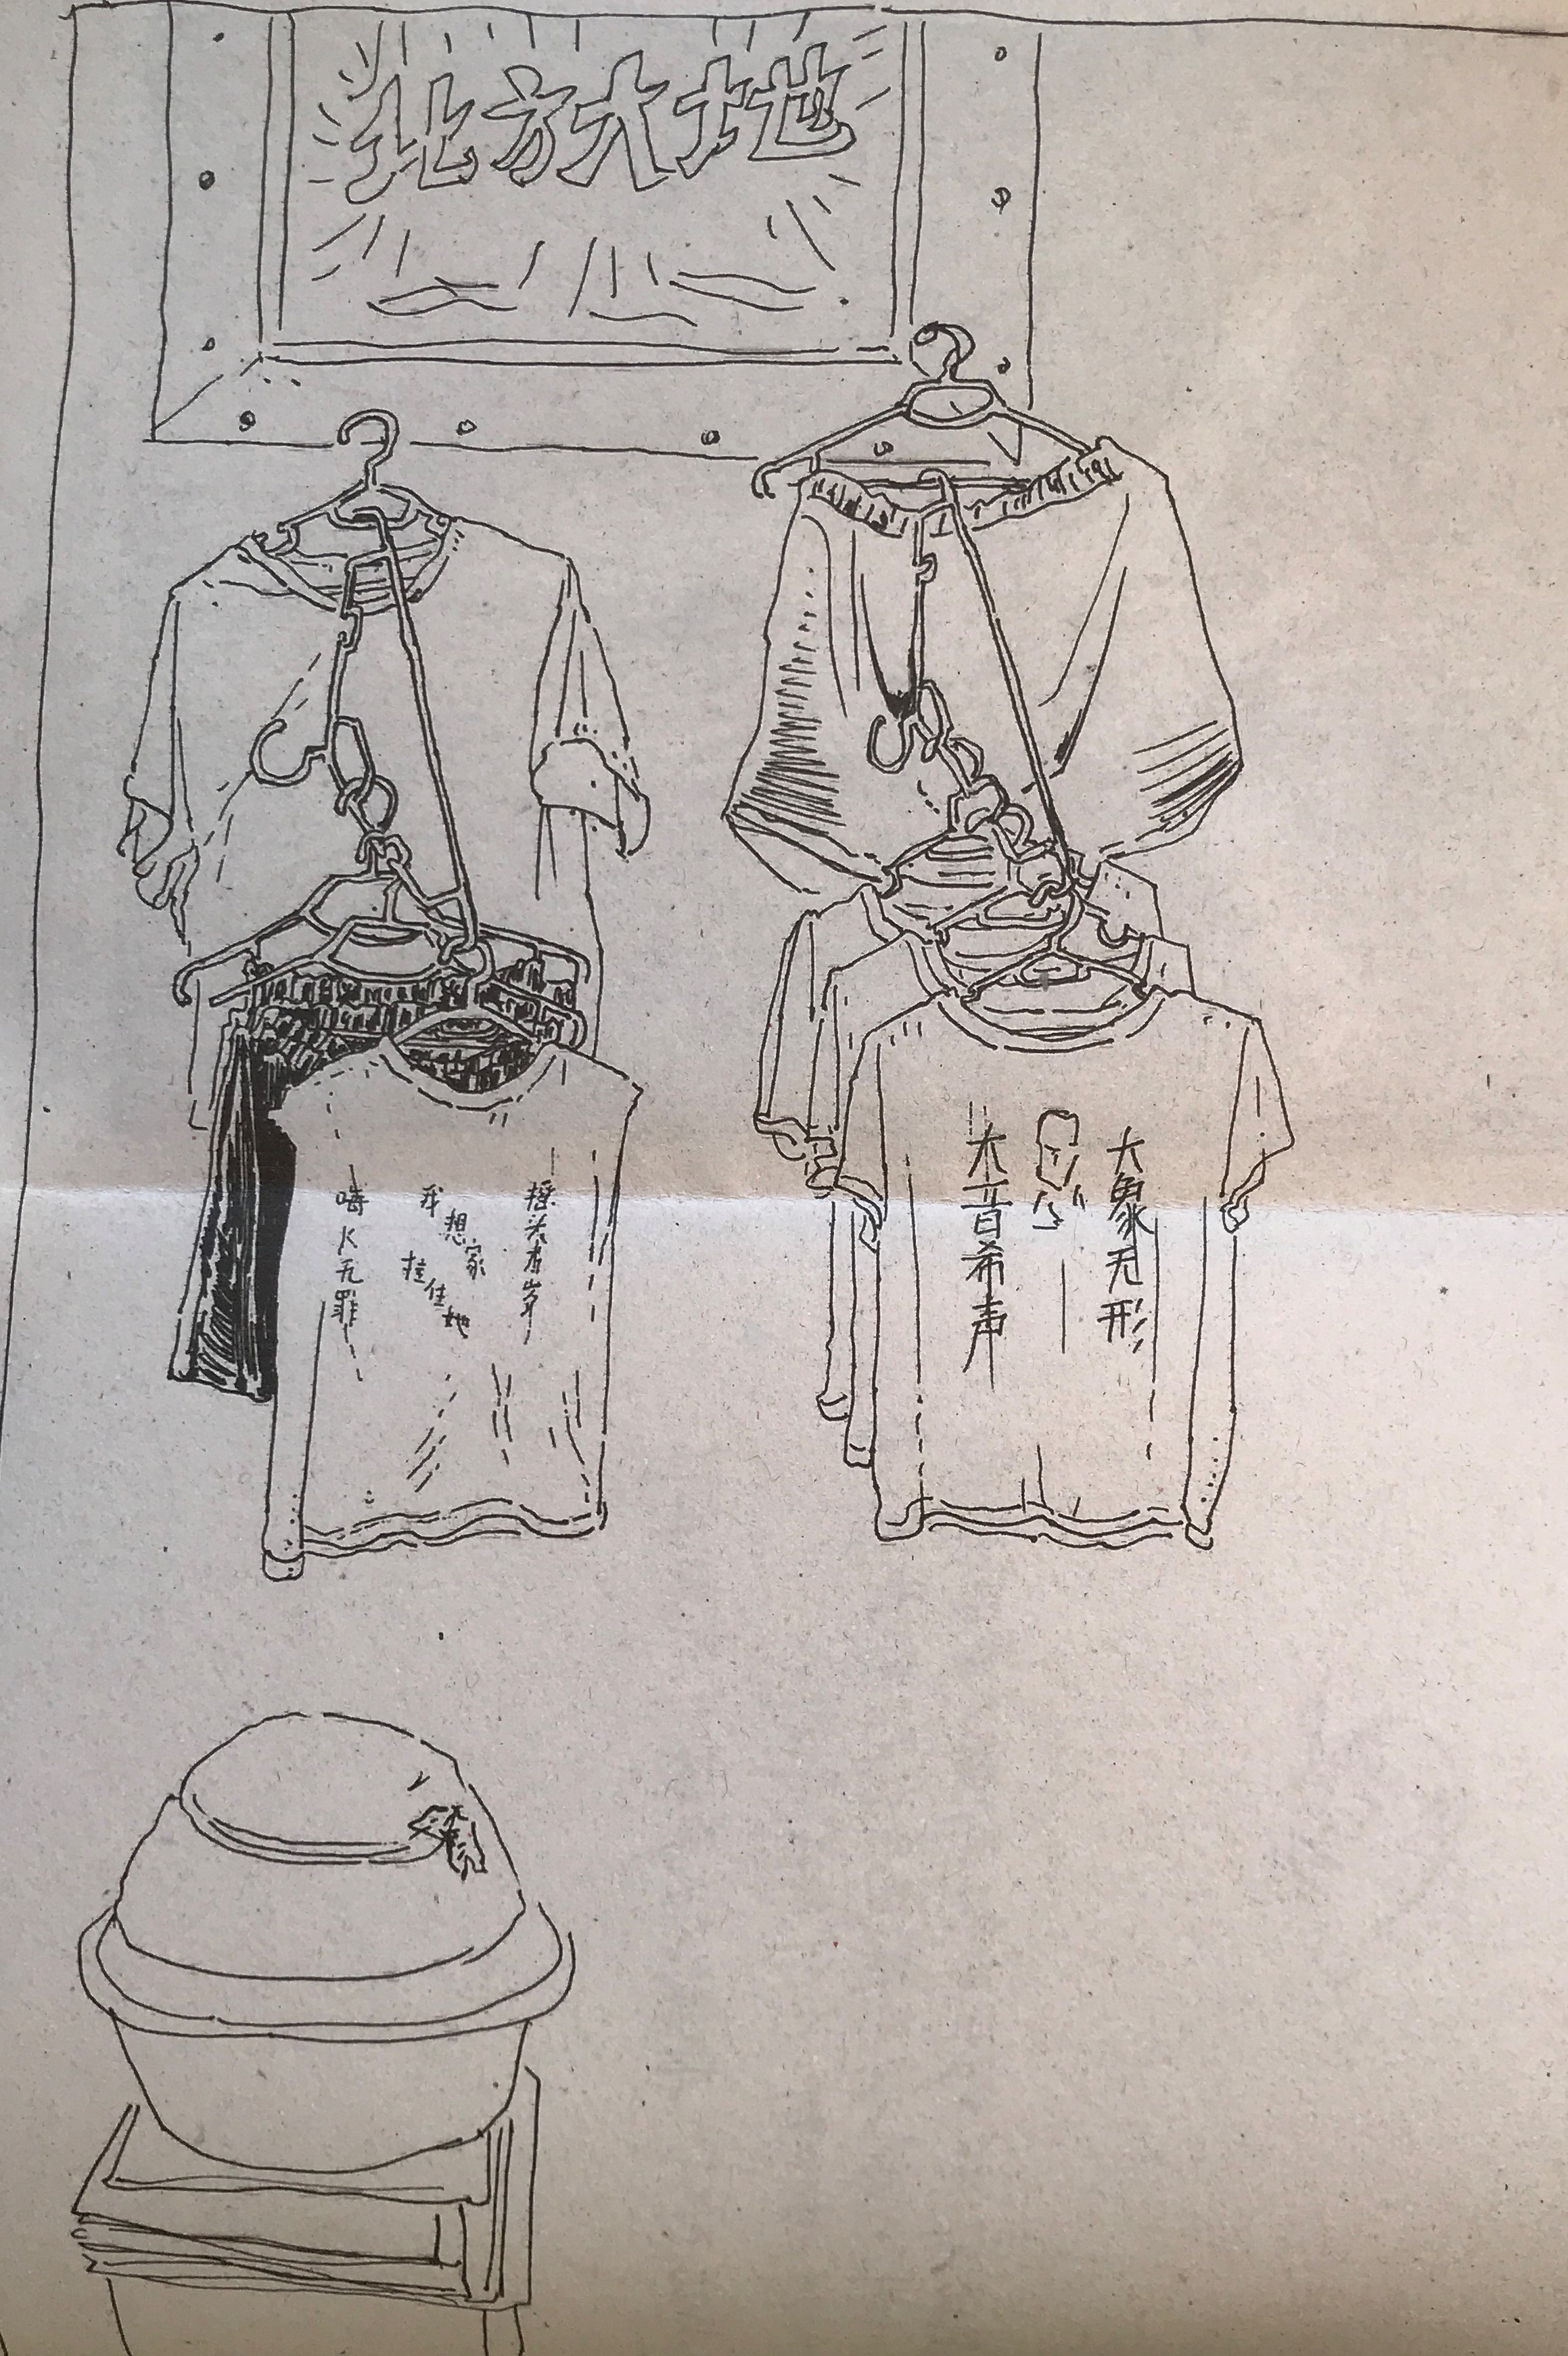 北方大地
摇头岁
我想家
挂住她
嗨K无罪
大象无形
大音希声